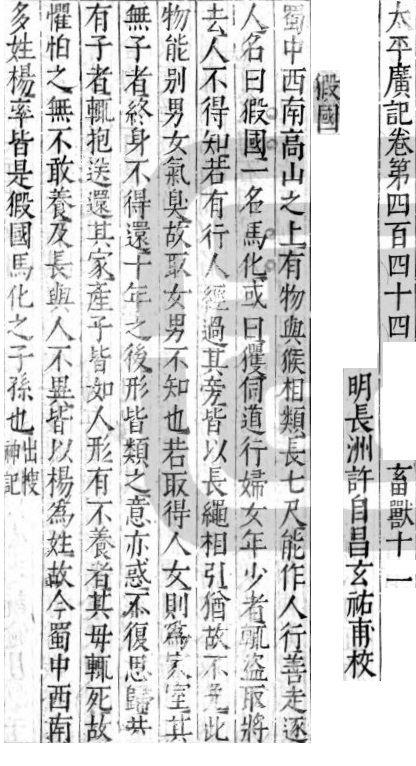 太平廣記卷第四百四十四　畜獸十一
明長洲許自昌玄祐甫校
猳國
蜀中西南高山之上有物與猴相類長七尺能作人行善走逐
人名曰猳國一名馬化或曰玃伺道行婦女年少者輒盜取將
去人不得知若有行人經過其旁皆以長繩相引猶故不免此
物能別男女氣臭故取女男不知也若取得人女則爲家室其
無子者終身不得還十年之後形皆類之意亦惑不復思歸若
有子者輒抱送還其家產子皆如人形有不養者其母輒死故
懼怕之無不敢養及長與人不異皆以楊爲姓故今蜀中西南
多姓楊率皆是猳國馬化之子孫也出搜神記